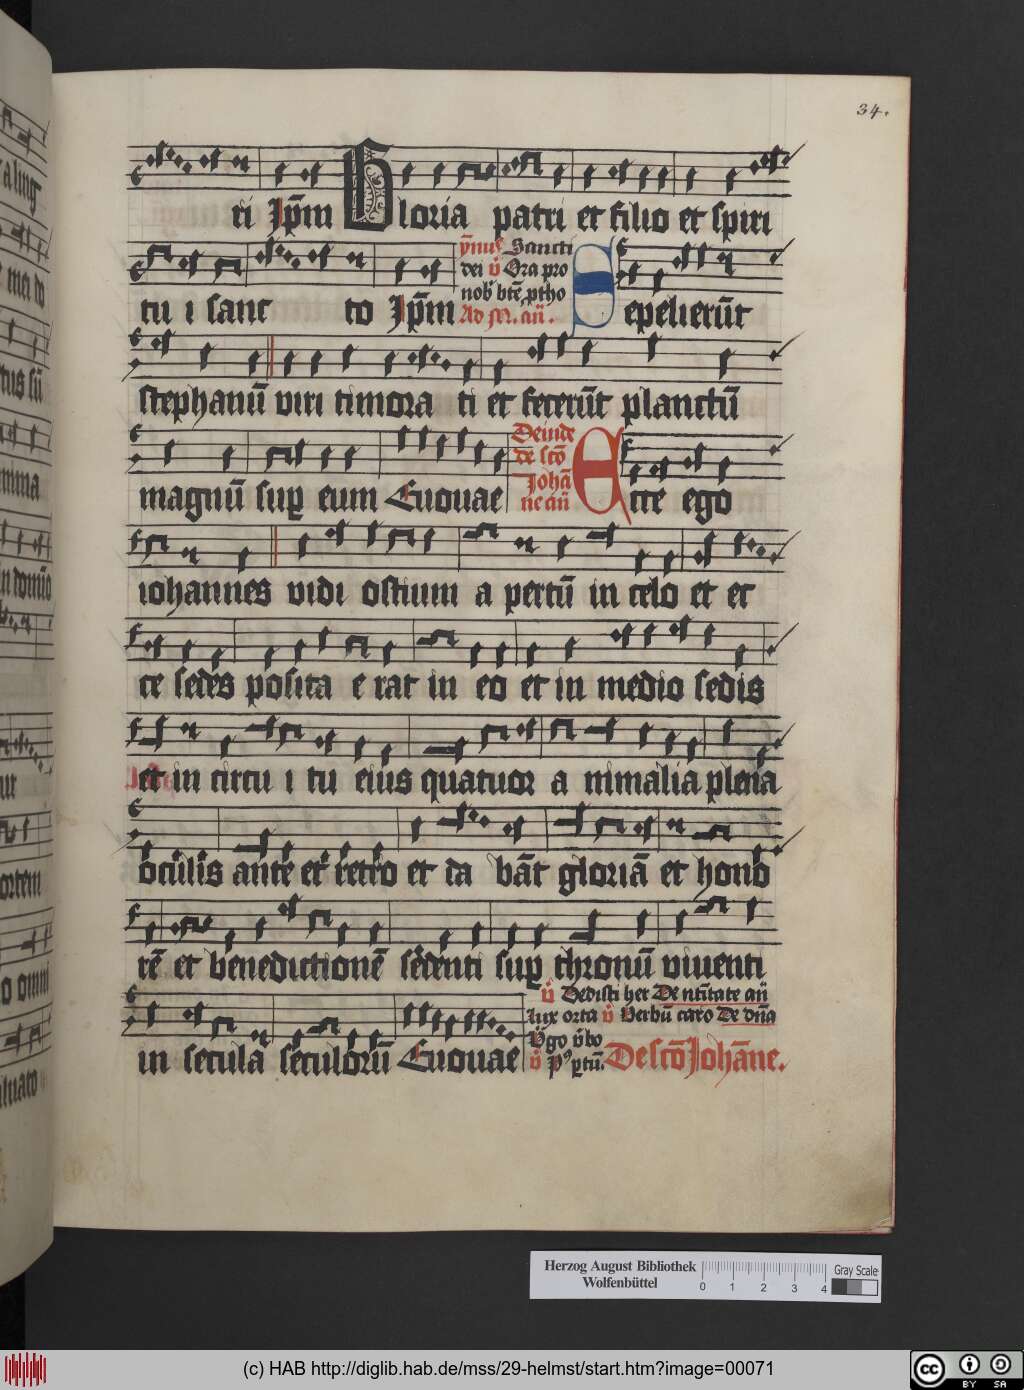 34.
ri Ip̄m Gloria patri et filio et spiri
tu i sanc to Ip̄m
ȳnus Sancti
dei v̄ Ora pro
nob' bt̄e ptho
Ad M. an̄.
Sepelierūt
stephanū viri timora ti et fecerūt planctū
magnū sup eum Euouae
Deinde
de scō
Johā
ne an̄
Ecce ego
iohannes vidi ostium a pertū in celo et ec
ce sedes posita e rat in eo et in medio sedis
et in circu i tu eius quatuor a nimalia plena
oculis ante et retro et da bāt gloriā et hono
rē et benedictionē sedenti sup thronū viuenti
in secula seculorū Euouae
v̄ Dedisti her De nt̄itate an̄
Lux orta v̄ Verbū caro De dn̄a
Vgo v̄bo
v̄ P9 ptū. De scō Johāne.
Herzog August Bibliothek
Wolfenbüttel
0 1 2 3 4
Gray Scale
(c) HAB http://diglib.hab.de/mss/29-helmst/start.htm?image=00071
cc BY SA